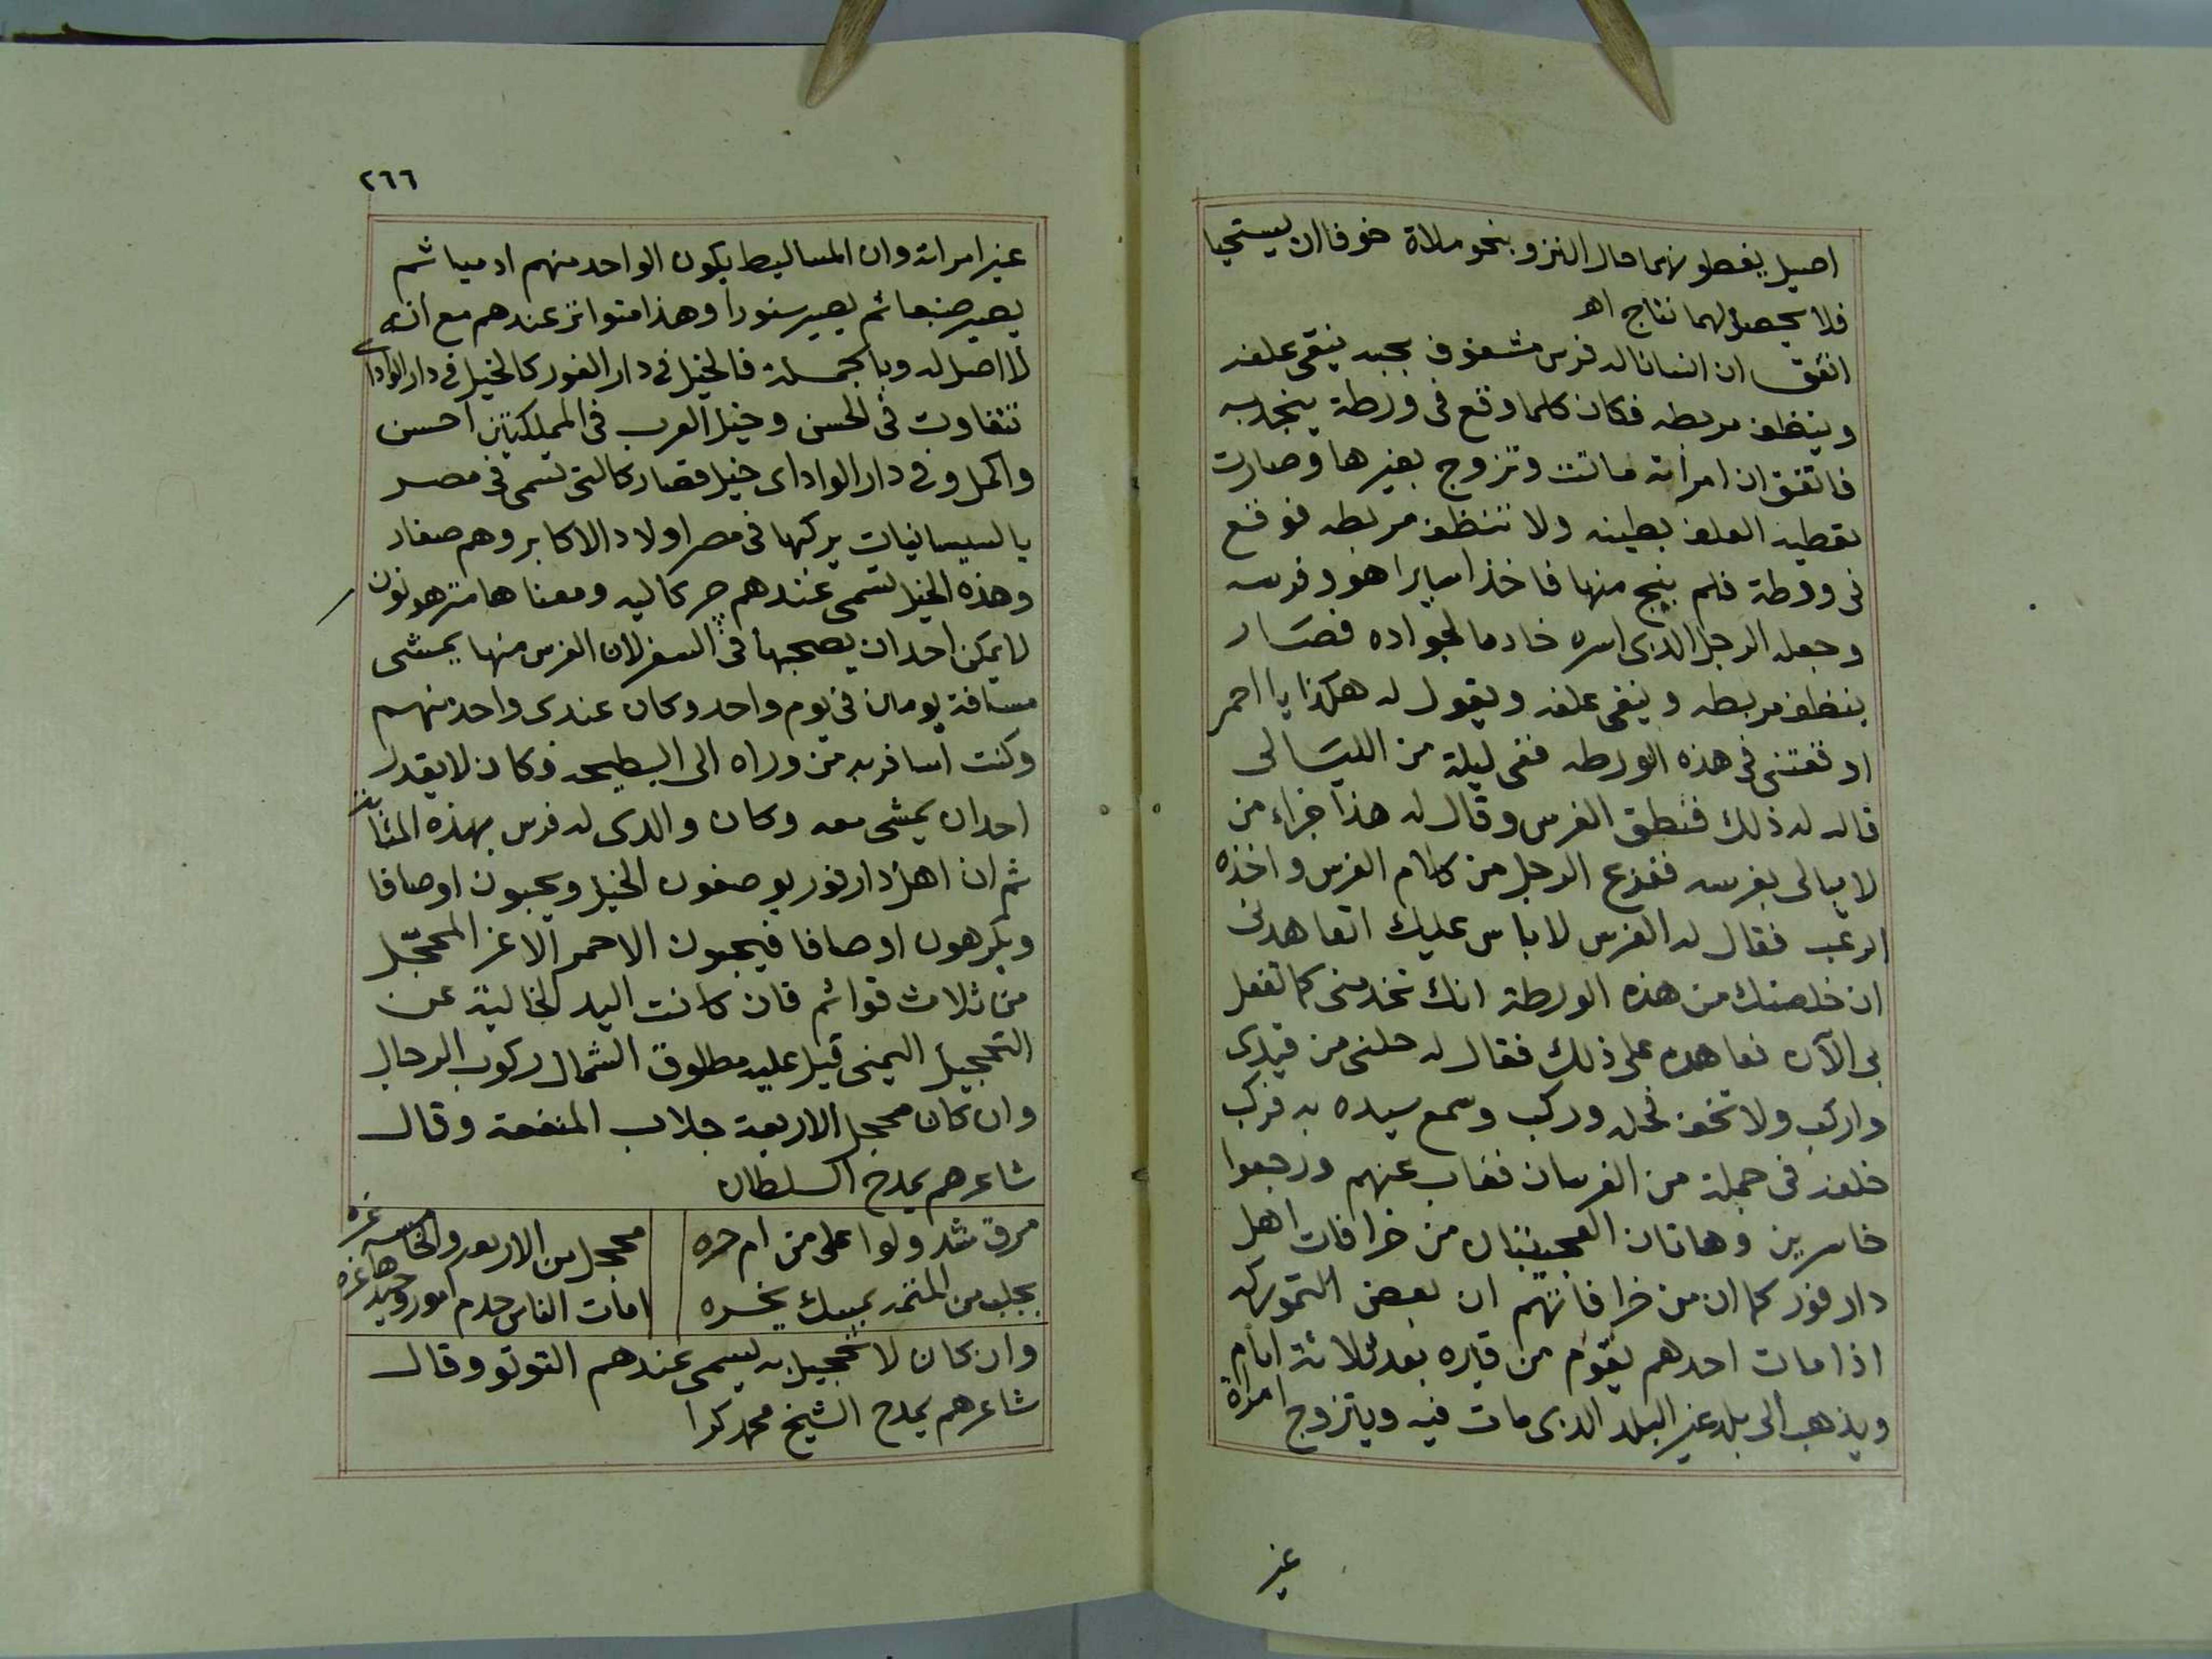 اصيل يغطونهما حال النزو بنحو ملاة خوفا ان يستحيا
فلا يحصل لهما نتاج اهـ
اتفق ان انسانا له فرس مشغوف بحبه ينقى علفه
وينظف مربطه فكان كلما وقع فى ورطة ينجد به
فاتفق ان امرأته ماتت وتزوج بغيرها وصارت
تعطيه العلف بطينه ولا تنظف مربطه فوقع
فى ورطة فلم ينج منها فاخذ اسيرا هو وفرسه
وجعله الرجل الدى اسره خادما لجواده فصار
ينظف مربطه وينقى علفه ويقول له هكذا يا احمر
اوقعتنى فى هذه الورطه ففى ليلة من الليالى
قال له ذلك فنطق الفرس وقال له هذا جزاء من
لا يبالى بفرسه ففزع الرجل من كلام الفرس واخذه
الرعب فقال له الفرس لا باس عليك اتعاهدنى
ان خلصتك من هذه الورطة انك تخدمنى كما تفعل
بى الآن فعاهده على ذلك فقال له حلنى من قيدى
واركب ولا تخف فحله وركب وسمع سيده به فركب
خلفه فى جملة من الفرسان فغاب عنهم ورجعوا
خاسرين وهاتان العجيبتان من خرافات اهل
دار فور كما ان من خرافاتهم ان بعض التموركه
اذا مات احدهم يقوم من قبره بعد ثلاثة ايام
ويذهب الى بلد غير البلد الدى مات فيه ويتزوج امراة
غير
٢٦٦
غير امراته وان المساليط يكون الواحد منهم ادميا ثم
يصير ضبعا ثم يصير سنورا وهذا متواتر عندهم مع انه
لا اصل له وبالجملة فالخيل فى دار الفور كالخيل فى دار الواداى
تتفاوت فى الحسن وخيل العرب فى المملكتين احسن
واكمل وفى دار الواداى خيل قصار كالتى تسمى فى مصر
بالسيسانيات يركبها فى مصر اولاد الاكابر وهم صغار
وهذه الخيل تسمى عندهم حركاليه ومعناها مترهونون
لا يمكن احد ان يصحبها فى السفر لان الفرس منها يمشى
مسافة يومين فى يوم واحد وكان عندى واحد منهم
وكنت اسافر به من وراه الى البطيحه وكان لا يقدر
احد ان يمشى معه وكان والدى له فرس بهذه المثابة
ثم ان اهل دار فور يوصفون الخيل ويحبون اوصافا
ويكرهون اوصافا فيحبون الاحمر الاغر المحجّل
من ثلاث قوائم فان كانت اليد الخالية عن
التحجيل اليمنى قيل عليه مطلوق الشمال ركوب الرجال
وان كان محجل الاربعة جلاب المنفعة وقال
شاعرهم يمدح السلطان
مرق شد ولوا على من ام حره محجل من الاربعه والخامسه غره
يجلب من المتمرد يمسك يخسره امات الناس حدم امور وحيدها غره
وان كان لا تحجيل به يسمى عندهم التوتو وقال
شاعرهم يمدح الشيخ محمد كرا